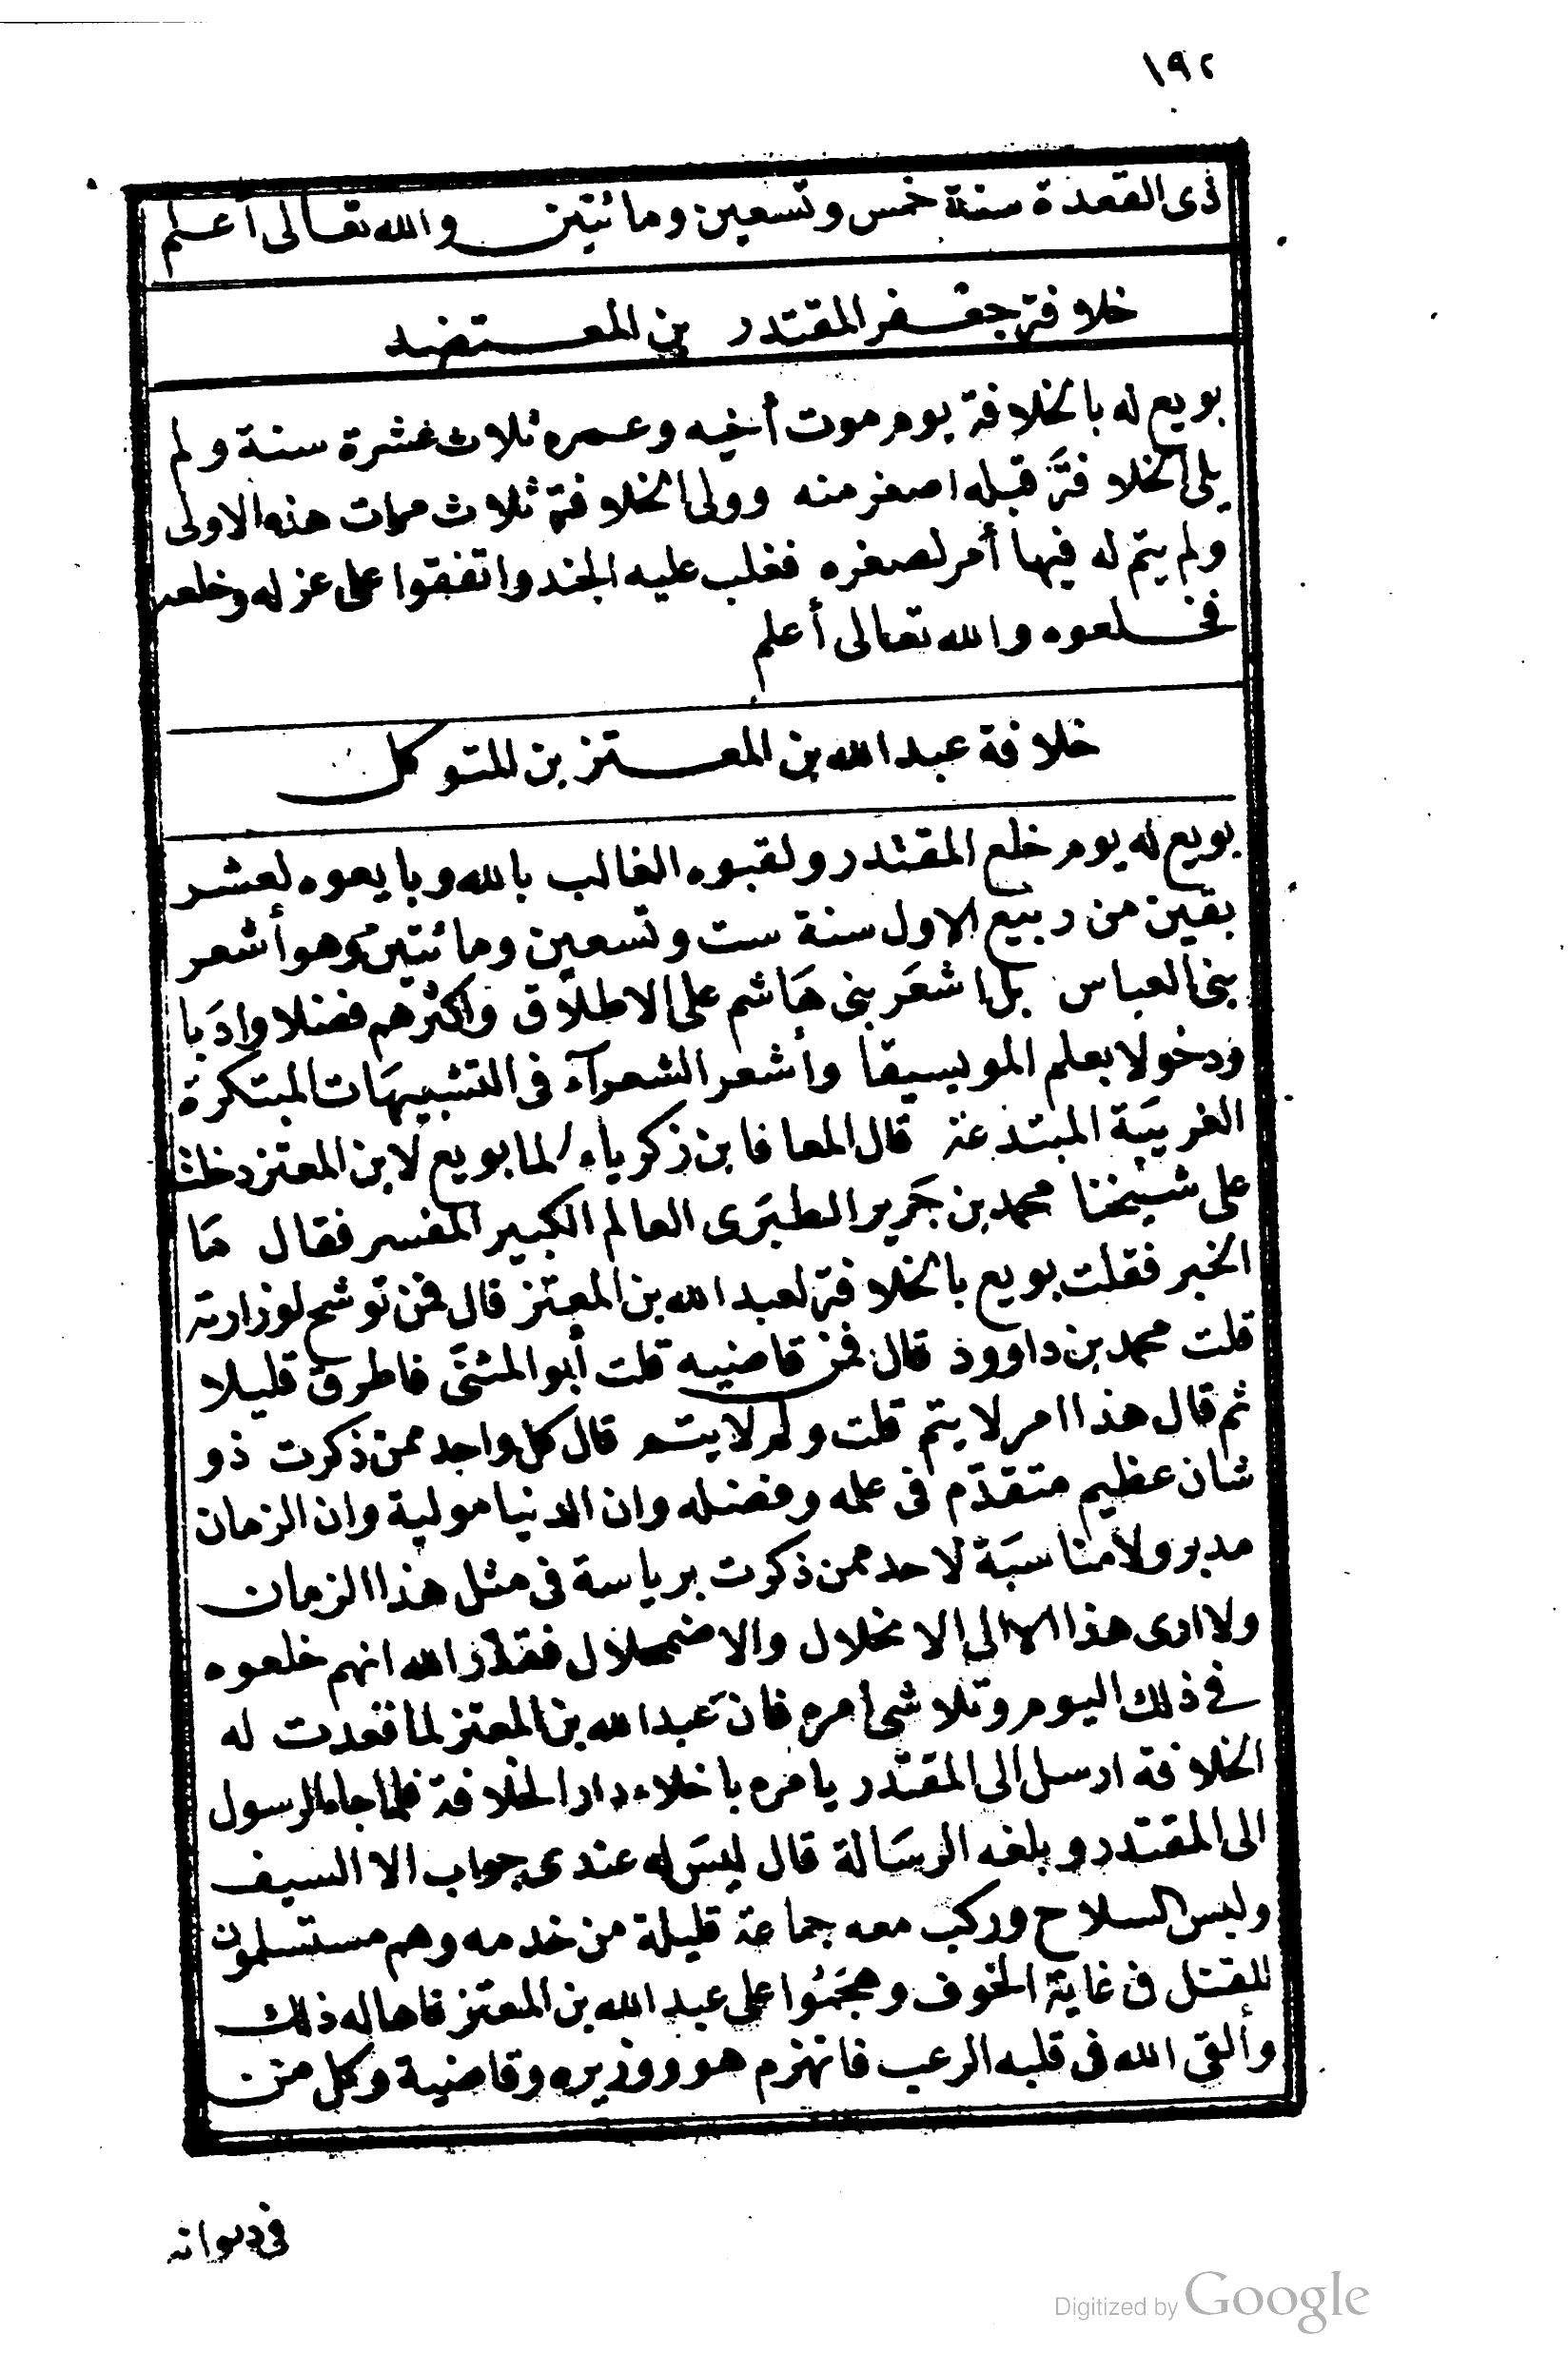 ١٩٢
ذى القعدة سنة خمس وتسعين ومائتين والله تعالى أعلم
خلافة جعفر المقتدر بن المعتضد
بويع له بالخلافة يوم موت أخيه وعمره ثلاث عشرة سنة ولم
يلى الخلافة قبله اصغر منه وولى الخلافة ثلاث مرات هذه الاولى
ولم يتم له فيها أمر لصغره فغلب عليه الجند واتفقوا على عزله وخلعه
فخلعوه والله تعالى أعلم
خلافة عبد الله بن المعتز بن المتوكل
بويع له يوم خلع المقتدر ولقبوه الغالب بالله وبايعوه لعشر
بقين من ربيع الاول سنة ست وتسعين ومائتين وهو أشعر
بنى العباس بل اشعر بنى هاشم على الاطلاق واكثرهم فضلا وادبا
ودخولا بعلم الموسيقا وأشعر الشعرآء فى التشبيهات المبتكرة
الغريبة المبتدعة قال المعافا بن زكرياء لما بويع لابن المعتز دخلت
على شيخنا محمد بن جرير الطبرى العالم الكبير المفسر فقال ما
الخبر فقلت بويع بالخلافة لعبد الله بن المعتز قال فمن توشح لوزارته
قلت محمد بن داوود قال فمن قاضيه قلت أبو المثنى فاطرق قليلا
ثم قال هذا امر لا يتم قلت ولم لا يتم قال كل واحد ممن ذكرت ذو
شان عظيم متقدّم فى علمه وفضله وان الدنيا مولية وان الزمان
مدبر ولا مناسبة لاحد ممن ذكرت برياسة فى مثل هذا الزمان
ولا ارى هذا الا الى الانحلال والاضمحلال فقدر الله انهم خلعوه
فى ذلك اليوم وتلاشى أمره فان عبد الله بن المعتز لما قعدت له
الخلافة ارسل الى المقتدر يامره باخلاء دار الخلافة فلما جاء الرسول
الى المقتدر وبلغه الرسالة قال ليس له عندى جواب الا السيف
ولبس السلاح وركب معه جماعة قليلة من خدمه وهم مستسلمون
للقتل فى غاية الخوف وهجموا على عبد الله بن المعتز فاهاله ذلك
وألقى الله فى قلبه الرعب فانهزم هو ووزيره وقاضية وكل من
فى ديوانه
Digitized by Google